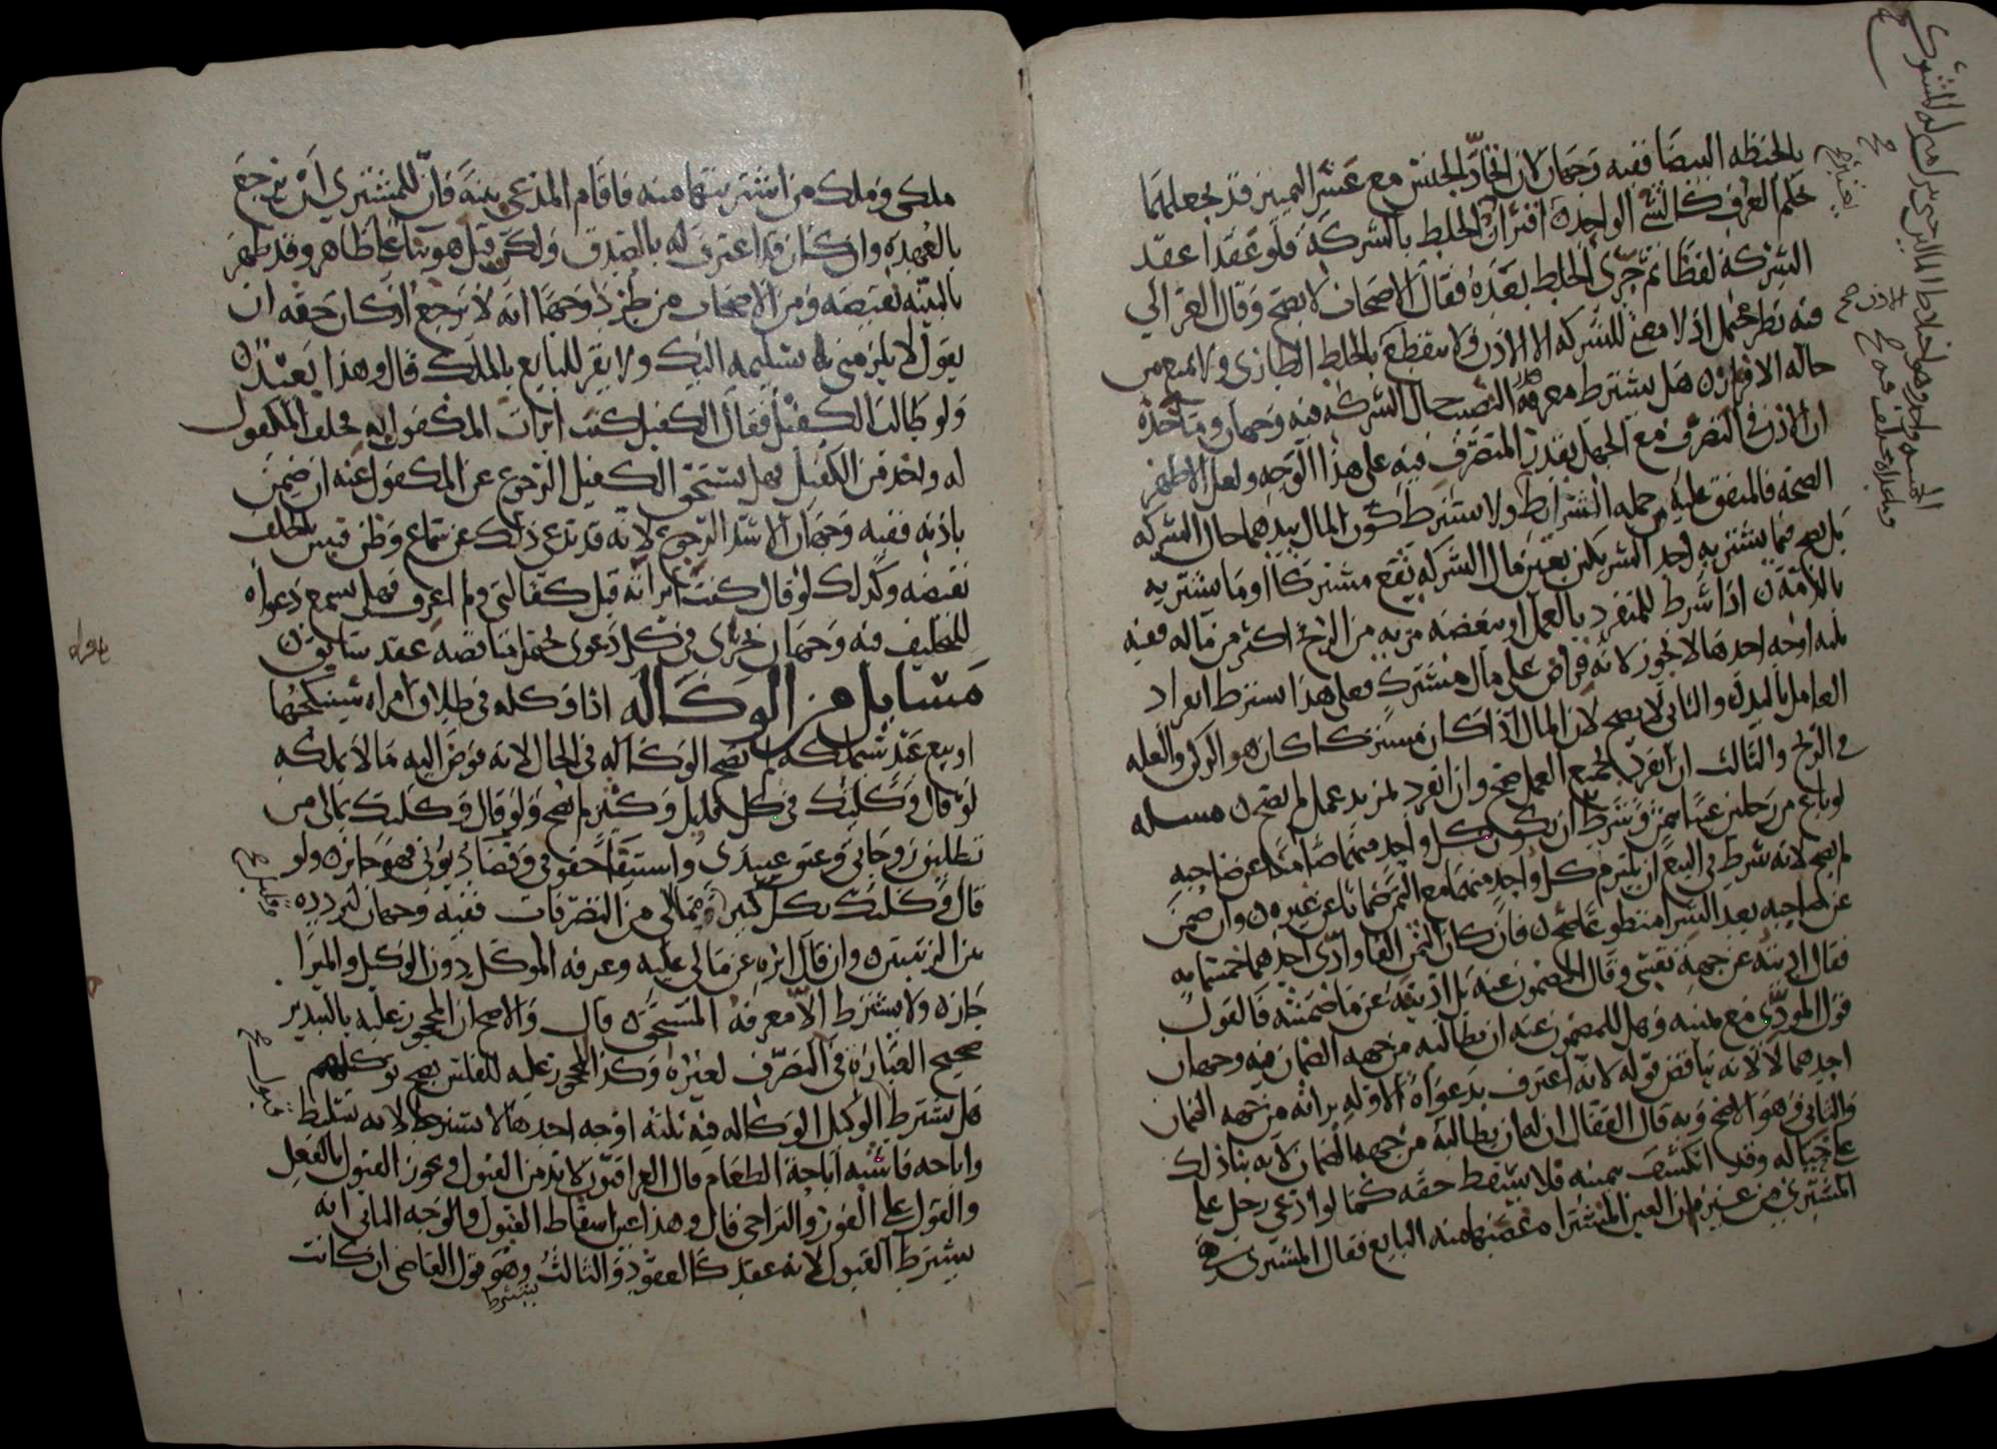 بالحنطه البيضا ففيه وجهان لان اتحاد الجنس مع عسر التمييز قد يجعلهما
حكم العرف كالشي الواحد ن اقتران الخلط بالشركة فلو عقدا عقد
الشركة لفظا ثم جرى الخلط بعده فقال الاصحاب لا يصح وقال الغزالي
فيه نظر يحتمل اذ لا معنى للشركه الا الاذن ولا ينقطع بالخلط الطاري ولا يمنع من
حاله الافراز ن هل يشترط معرفة النصيب حال الشركه فيه وجهان وماخذه
ان الاذن في التصرف مع الجهل بقدر المتصرف فيه على هذا الوجه ولعل الاظهر
الصحة فالمتفق عليه من جمله الشرايط ولا يشترط كون المال بيدهما حال الشركه
بل يصح فيما يشتريه احد الشريكين بعين مال الشركه يقع مشتركا وما يشتريه
بالذمة ن اذا شرط للمتفرد بالعمل او ببعضه مزيه من الربح اكثر من ماله ففيه
ثلثه اوجه احدهما لا يجوز لانه قراض على مال مشترك فعلى هذا يشترط انفراد
العامل باليد ن والثاني لا يصح لان المال اذا كان مشتركا كان هو الركن والعله
في الربح والثالث ان انفرد بجميع العمل صح وان انفرد بمزيد عمل لم يصح ن مسله
لو باع من رجلين عينا بثمن وشرط ان يكون كل واحد منهما ضامنا عن صاحبه
لم يصح لانه شرط في البيع ان يلتزم كل واحد منهما مع الثمن ضمانا عن غيره ن وان ضمن
عن صاحبه بعد الشرا متطوعا صح ن فان كان الثمن الفا وادى احدهما خمسمايه
فقال اديته عن جهة نفسي وقال المضمون عنه بل اديته عن ما ضمنته فالقول
قول المودي مع يمينه وهل للمضمون عنه ان يطالبه من جهه الضمان فيه وجهان
احدهما لا لانه يناقض قوله لانه اعترف بدعواه الاوله براته من جهه الضمان
والثاني وهو الاصح وبه قال القفال ان له ان يطالبه من جهه الضمان لانه بنا ذلك
على خياله وقد انكشف بيمينه فلا يسقط حقه كما لو ادعى رجل على
المشتري من عين من العين المشتراه غصبتها منه البايع فقال المشتري هي
ملكي وملك من اشتريتها منه فاقام المدعي بينة فان للمشتري ان يرجع
بالعهده وان كان قد اعترف له بالصدق ولكن قيل هو بنا على ظاهر وقد ظهر
بالبينه نقيضه ومن الاصحاب من طرد وجها انه لا يرجع اذ كان حقه ان
يقول لا يلزمني تسليمه اليك ولا يقر للبايع بالملك قال وهذا بعيد ن
ولو طالب الكفيل فقال الكفيل كنت ابرات المكفول له فحلف المكفول
له واخذ من الكفيل فهل يستحق الكفيل الرجوع عن المكفول عنه ان ضمن
باذنه ففيه وجهان الاشد الرجوع لانه قد يدعي ذلك عن سماع وظن فتبين بالحلف
نقيضه وكذلك لو قال كنت ابراته قبل كفالتي ولم اعرف فهل يسمع دعواه
للتحليف فيه وجهان يجري في كل دعوى يحتمل مناقضه عقد سابق ن
مسايل من الوكاله اذا وكله في طلاق امراه سينكحها
او بيع عبد سيملكه لم تصح الوكاله في الحال لانه فوض اليه ما لا يملكه
لو قال وكلتك في كل قليل وكثير لم يصح ولو قال وكلتك بمالي من
تطليق زوجاتي وعتق عبيدي واستيفا حقوقي وقضا ديوني فهو جايز ن ولو
قال وكلتك بكل كثير وقمالي من التصرفات ففيه وجهان لتردده
بين المرتبتين وان قال ابره عن مالي عليه وعرفه الموكل دون الوكيل والمبرا
جاز ن ولا يشترط الا معرفة المستحق ن قال والاصح ان المحجور عليه بالتبذير
صحيح العبارة في التصرف لغيره وكذا المحجور عليه للفلس يصح توكيلهم
هل يشترط الوكيل الوكاله فيه ثلثة اوجه احدها لا يشترط لانه تسليط
واباحه فاشبه اباحة الطعام قال العراقيون لا بد من القبول ويجوز القبول بالفعل
والقول على الفور والتراخي قال وهذا عين اسقاط القبول والوجه الثاني انه
يشترط القبول لانه عقد كالعقود والثالث وهو قول القاضي ان كانت
يشترط